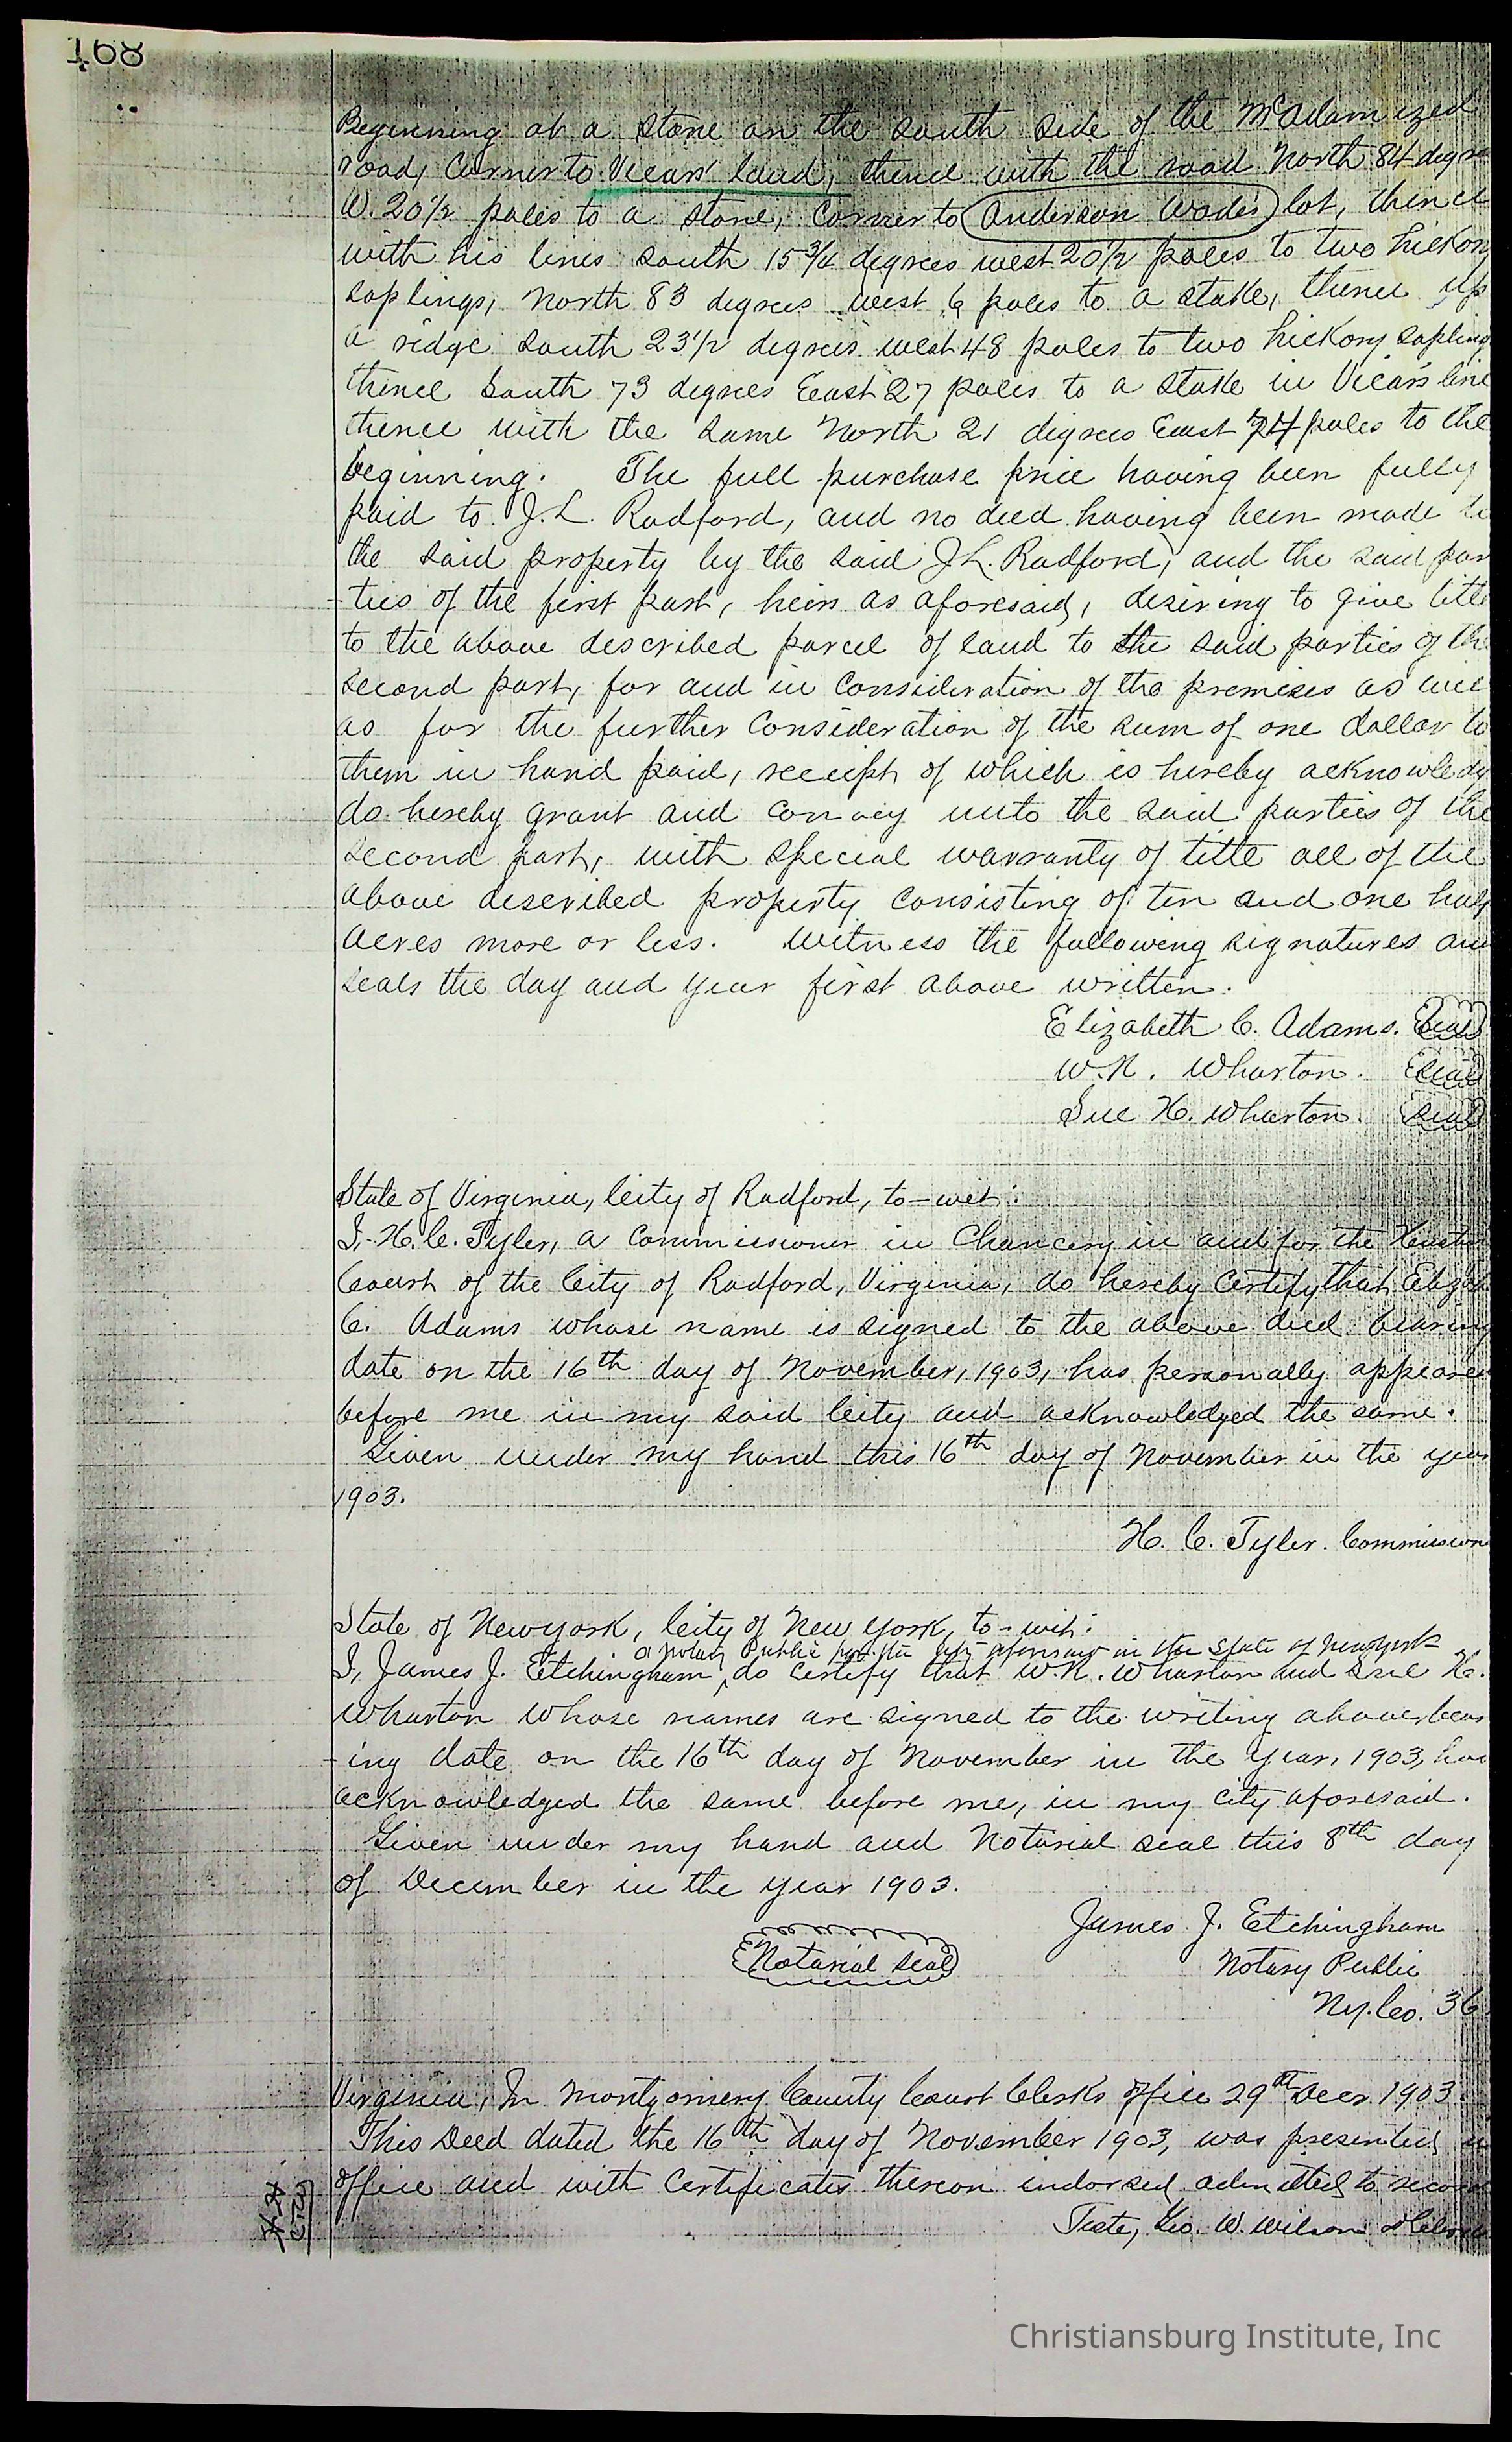 168
Beginning at a stone on the south side of the McAdamized
road, Corner to Vicars' land, thence with the road North 84 degre
W. 20 1/2 poles to a stone, Corner to Anderson Wade's lot, thence
with his lines south 15 3/4 degrees west 20 1/2 poles to two hickory
saplings, North 83 degrees west 6 poles to a stake, thence up
a ridge South 23 1/2 degrees west 48 poles to two hickory sapling
thence South 73 degrees East 27 poles to a stake in Vicar's line
thence with the same North 21 degrees East 74 poles to the
beginning. The full purchase price having been fully
paid to J. L. Radford, and no deed having been made to
the said property by the said J. L. Radford, and the said par
-ties of the first part, heirs as aforesaid, desiring to give title
to the above described parcel of land to the said parties of the
second part, for and in Consideration of the premises as well
as for the further Consideration of the sum of one dollar to
them in hand paid, receipt of which is hereby acknowledg
do hereby grant and convey unto the said parties of the
second part, with special warranty of title all of the
above described property Consisting of ten and one half
acres more or less. Witness the following signatures and
seals the day and year first above written.
Elizabeth C. Adams. Seal
W. N. Wharton. Seal
Sue H. Wharton. Seal
State of Virginia, City of Radford, to-wit:
I, H. C. Tyler, a Commissioner in Chancery in and for the Hustin
Court of the City of Radford, Virginia, do hereby Certify that Elizab
C. Adams whose name is signed to the above deed bearing
date on the 16th day of November, 1903, has personally appeared
before me in my said City and acknowledged the same.
Given under my hand this 16th day of November in the year
1903.
H. C. Tyler. Commission
State of New York, City of New York, to-wit:
a Notary Public for the city aforesaid in the State of New York
I, James J. Etchingham, do certify that W. N. Wharton and Sue H.
Wharton whose names are signed to the writing above, bear
-ing date on the 16th day of November in the year, 1903, hav
acknowledged the same before me, in my city aforesaid.
Given under my hand and Notarial seal this 8th day
of December in the year 1903.
James J. Etchingham
Notarial Seal
Notary Public
Ny. Co. 36
Virginia, In Montgomery County Court Clerks office 29th Decr. 1903.
This Deed dated the 16th day of November 1903, was presented in
office and with Certificates thereon indorsed admitted to record
Teste, Geo. W. Wilson
Christiansburg Institute, Inc